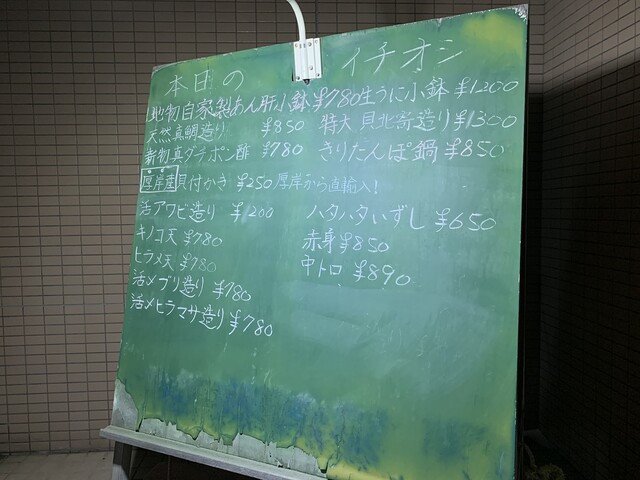 本日の イチオシ
地物自家製あん肝小鉢 ¥780 生うに小鉢 ¥1200
天然真鯛造り ¥850 特大 貝北寄造り ¥1300
新物真ダラポン酢 ¥780 きりたんぽ鍋 ¥850
厚岸産 貝付かき ¥250 厚岸から直輸入!
活アワビ造り ¥1200 ハタハタいずし ¥650
キノコ天 ¥780 赤身 ¥850
ヒラメ天 ¥780 中トロ ¥890
活〆ブリ造り ¥780
活〆ヒラマサ造り ¥780